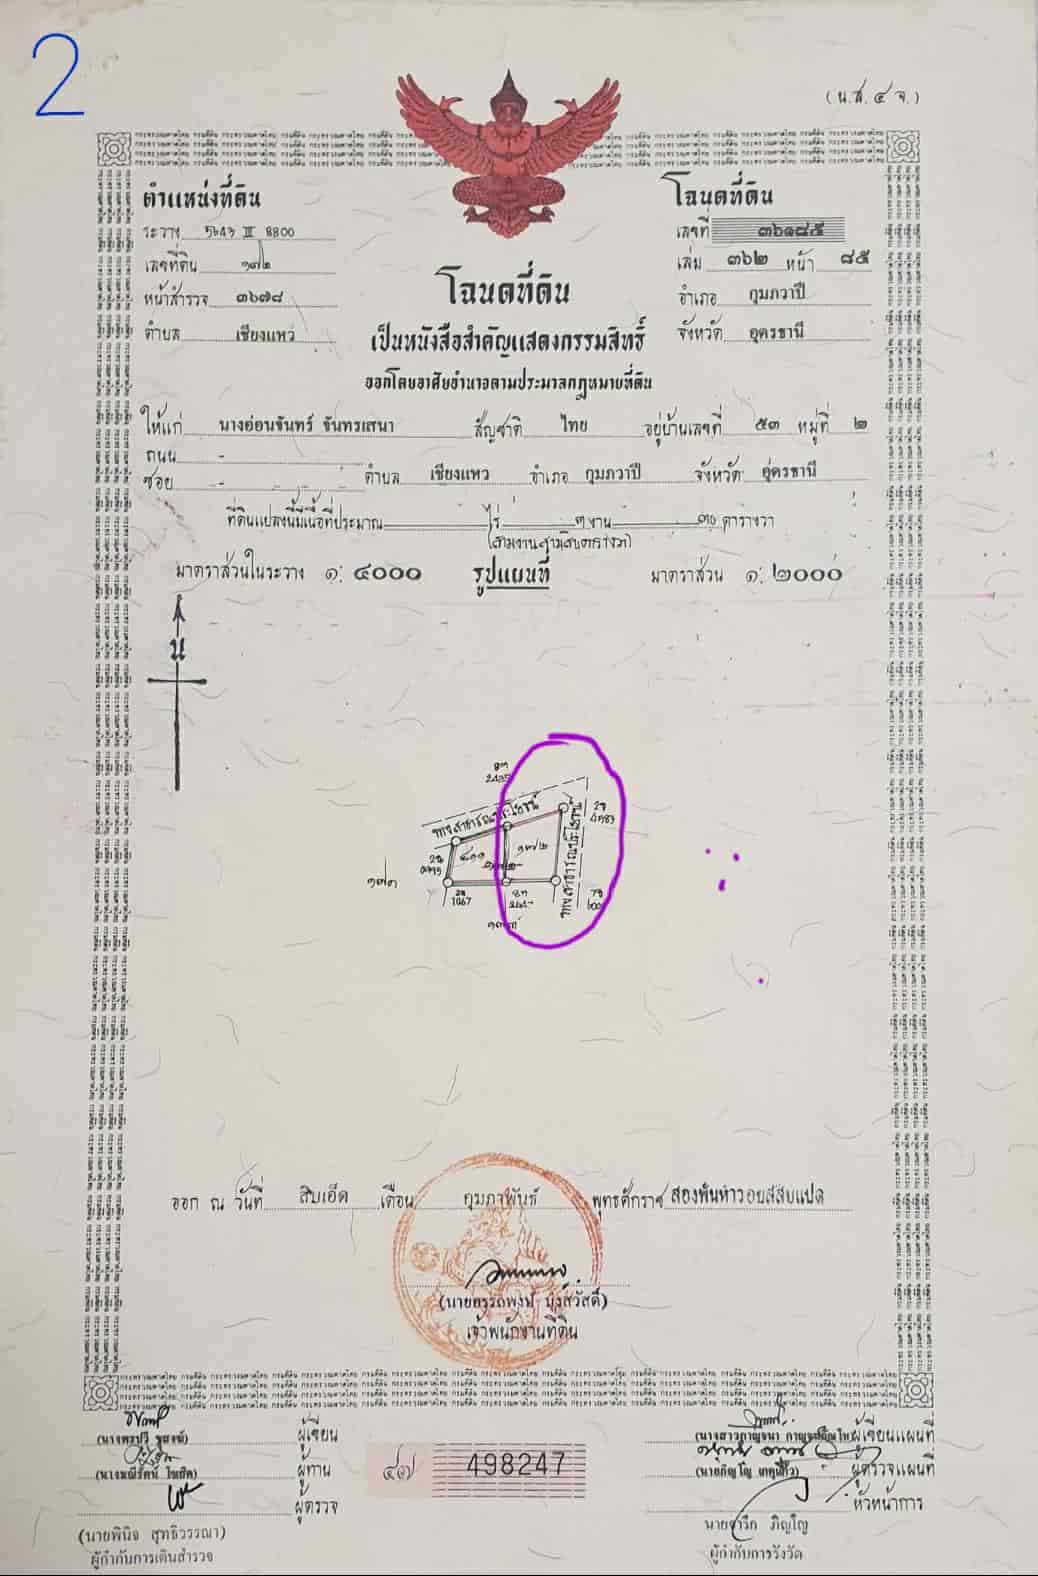 2
(น.ส.๔ จ.)
ตำแหน่งที่ดิน
ระวาง 5643 III 8800
เลขที่ดิน ๑๗๒
หน้าสำรวจ ๓๖๗๘
ตำบล เชียงแหว
โฉนดที่ดิน
เลขที่ ๓๖๑๘๕
เล่ม ๓๖๒ หน้า ๘๕
อำเภอ กุมภวาปี
จังหวัด อุดรธานี
โฉนดที่ดิน
เป็นหนังสือสำคัญแสดงกรรมสิทธิ์
ออกโดยอาศัยอำนาจตามประมวลกฎหมายที่ดิน
ให้แก่ นางอ่อนจันทร์ จันทรเสนา สัญชาติ ไทย อยู่บ้านเลขที่ ๕๓ หมู่ที่ ๒
ถนน -
ซอย - ตำบล เชียงแหว อำเภอ กุมภวาปี จังหวัด อุดรธานี
ที่ดินแปลงนี้มีเนื้อที่ประมาณ ไร่ ๓ งาน ๓๐ ตารางวา
(สามงานสามสิบตารางวา)
มาตราส่วนในระวาง ๑: ๔๐๐๐ รูปแผนที่ มาตราส่วน ๑: ๒๐๐๐
น
ทางสาธารณประโยชน์
๑๗๒
ทางสาธารณประโยชน์
๑๗๓
1067
ออก ณ วันที่ สิบเอ็ด เดือน กุมภาพันธ์ พุทธศักราช สองพันห้าร้อยสี่สิบแปด
เจ้าพนักงานที่ดิน
ผู้เขียน
ผู้ทาน
ผู้ตรวจ
(นายพินิจ สุทธิวรรณา)
ผู้กำกับการเดินสำรวจ
498247
ผู้เขียนแผนที่
ผู้ตรวจแผนที่
หัวหน้าการ
นายจารึก ภิญโญ
ผู้กำกับการรังวัด